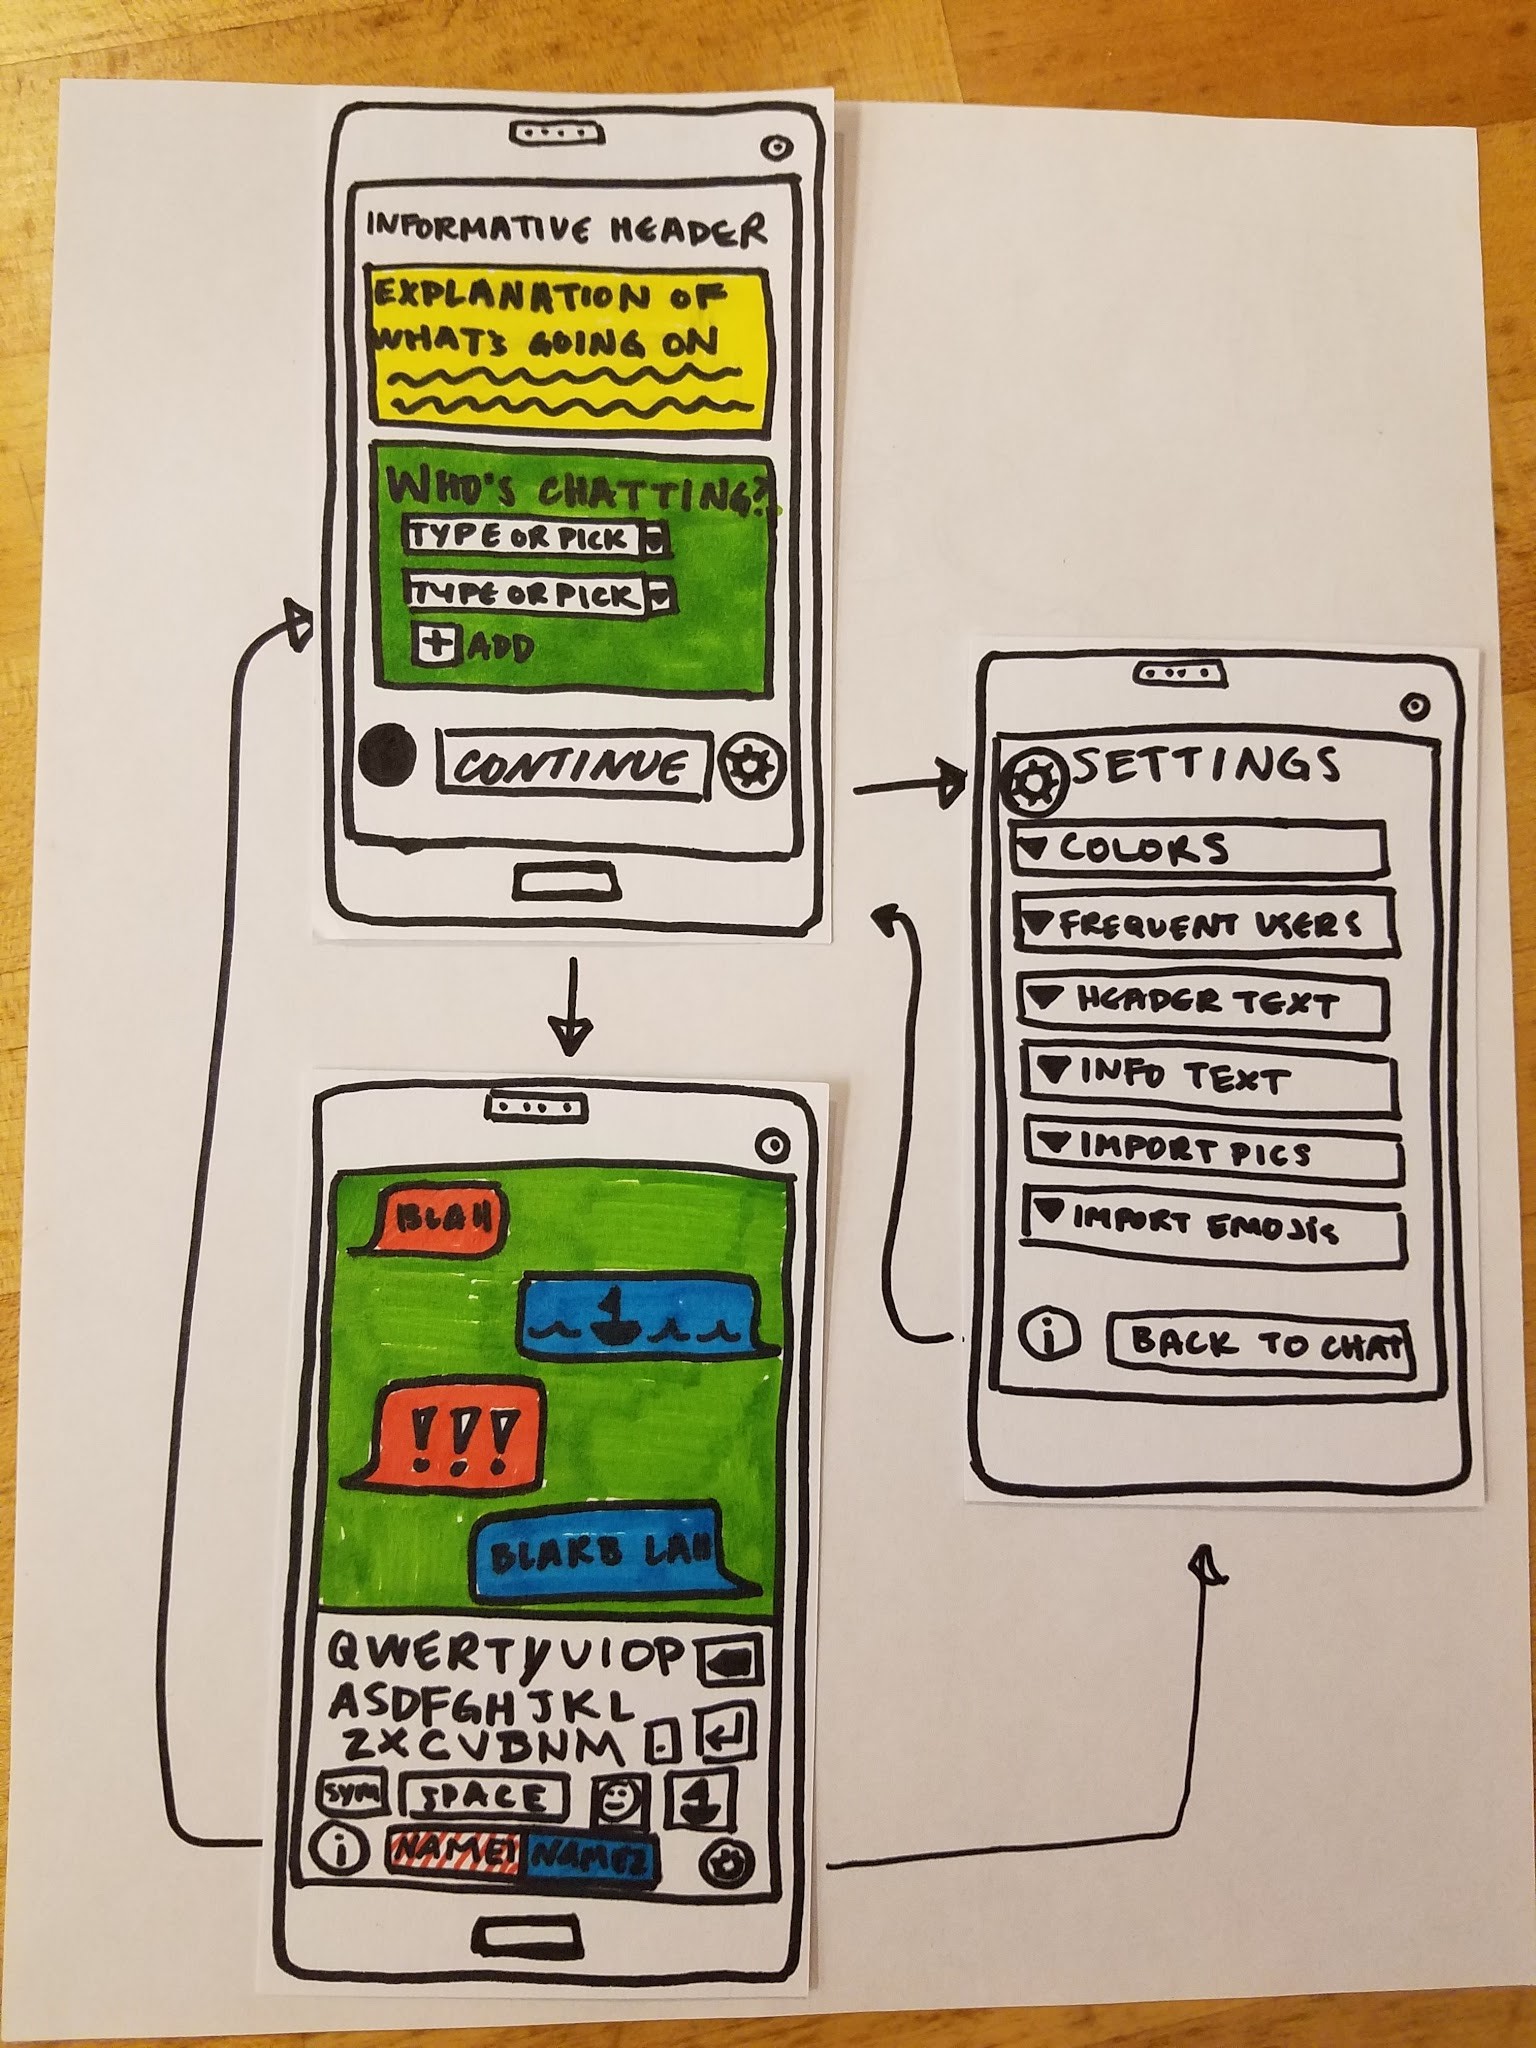 INFORMATIVE HEADER
EXPLANATION OF
WHAT'S GOING ON
WHO'S CHATTING?
TYPE OR PICK
TYPE OR PICK
+ ADD
CONTINUE
SETTINGS
COLORS
FREQUENT USERS
HEADER TEXT
INFO TEXT
IMPORT PICS
IMPORT EMOJIS
i BACK TO CHAT
BLAH
!!!
BLARB LAH
QWERTYUIOP
ASDFGHJKL
ZXCVBNM .
SYM SPACE
i NAME1 NAME2